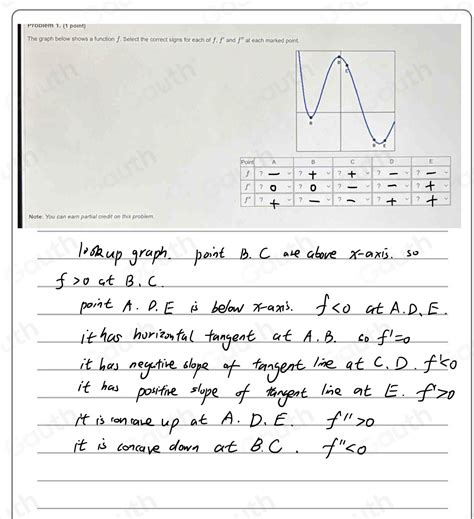 Problem 1. (1 point)
The graph below shows a function f. Select the correct signs for each of f, f' and f'' at each marked point.
B
C
A
D E
Point A B C D E
f ? — ? + ? + ? — ? —
f' ? 0 ? 0 ? — ? — ? +
f'' ? + ? — ? — ? + ? +
Note: You can earn partial credit on this problem.
look up graph. point B. C are above x-axis. so
f>0 at B. C.
point A. D. E is below x-axis. f<0 at A. D. E.
it has horizontal tangent at A. B. so f'=0
it has negative slope of tangent line at C. D. f'<0
it has positive slope of tangent line at E. f'>0
it is concave up at A. D. E. f''>0
it is concave down at B. C. f''<0